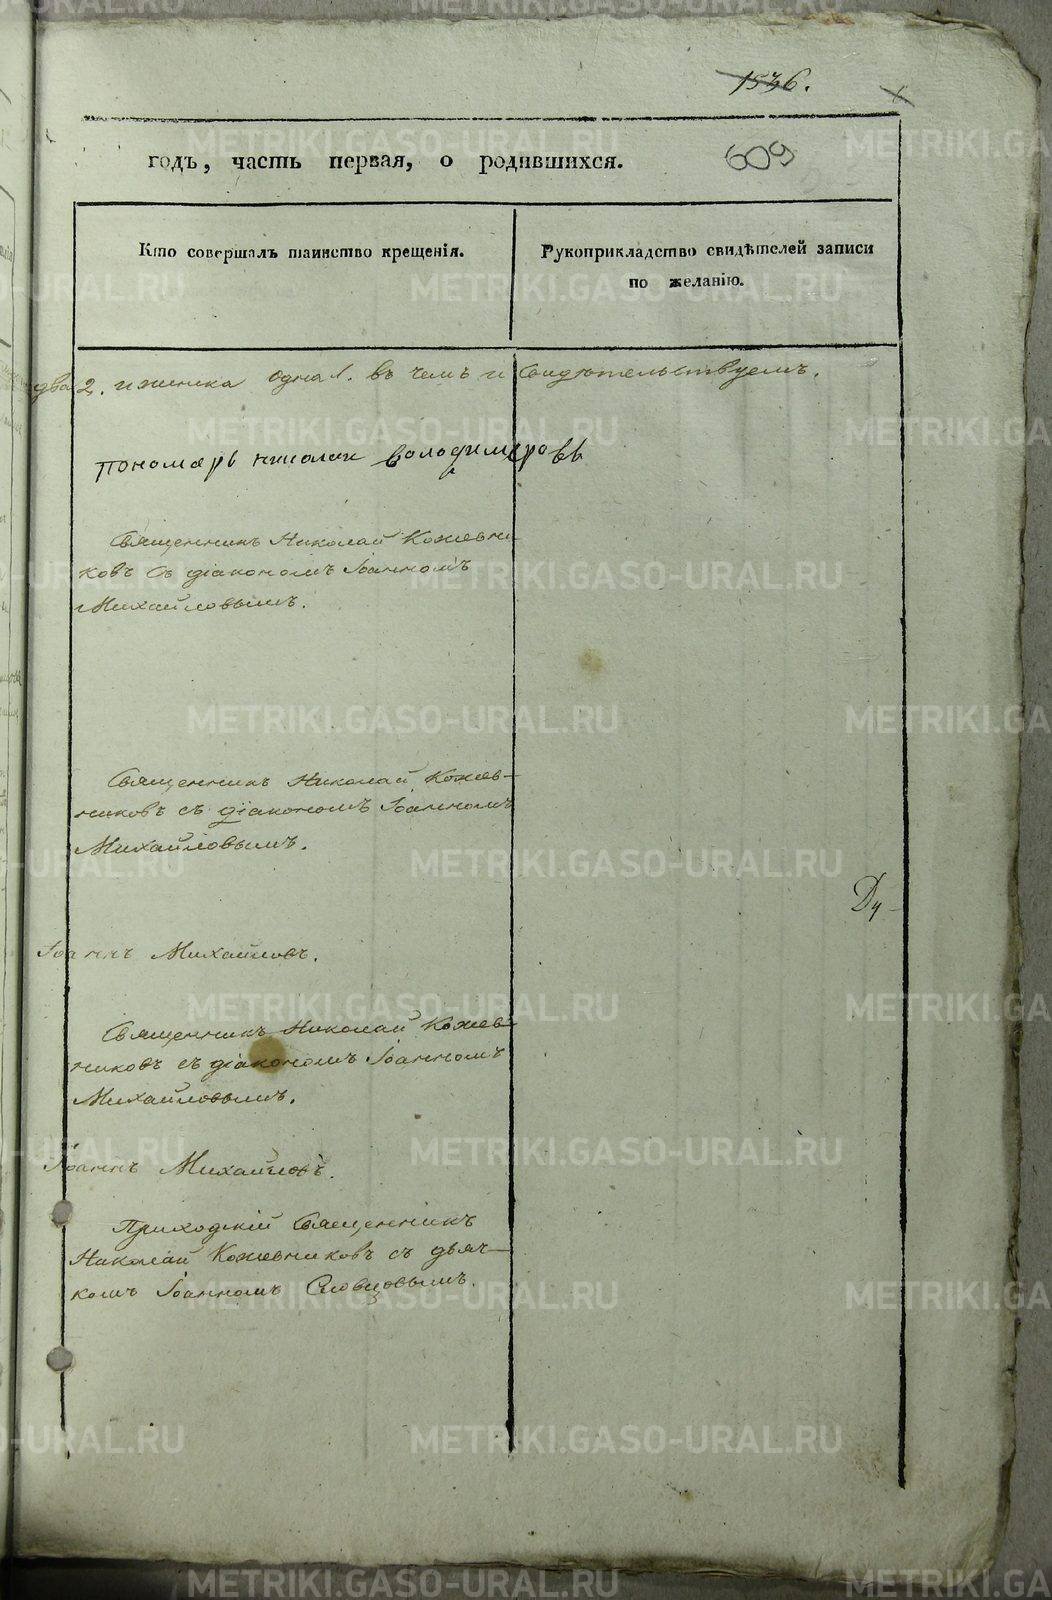 1536.
609
годъ, часть первая, о родившихся.
Кто совершалъ таинство крещенія.
Рукоприкладство свидѣтелей записи
по желанію.
два 2. и женска одна 1. въ чемъ и свидѣтельствуемъ.
пономарь николаи володимеровъ
Священникъ Николай Кожевни
ковъ съ діакономъ Іоанномъ
Михайловымъ.
Священникъ Николай Кожев-
никовъ съ діакономъ Іоанномъ
Михайловымъ.
Іоаннъ Михайловъ.
Священникъ Николай Кожев-
никовъ съ діакономъ Іоанномъ
Михайловымъ.
Іоаннъ Михайловъ.
Приходскій Священникъ
Николай Кожевниковъ съ дьяч-
комъ Іоанномъ Словцовымъ.
METRIKI.GASO-URAL.RU